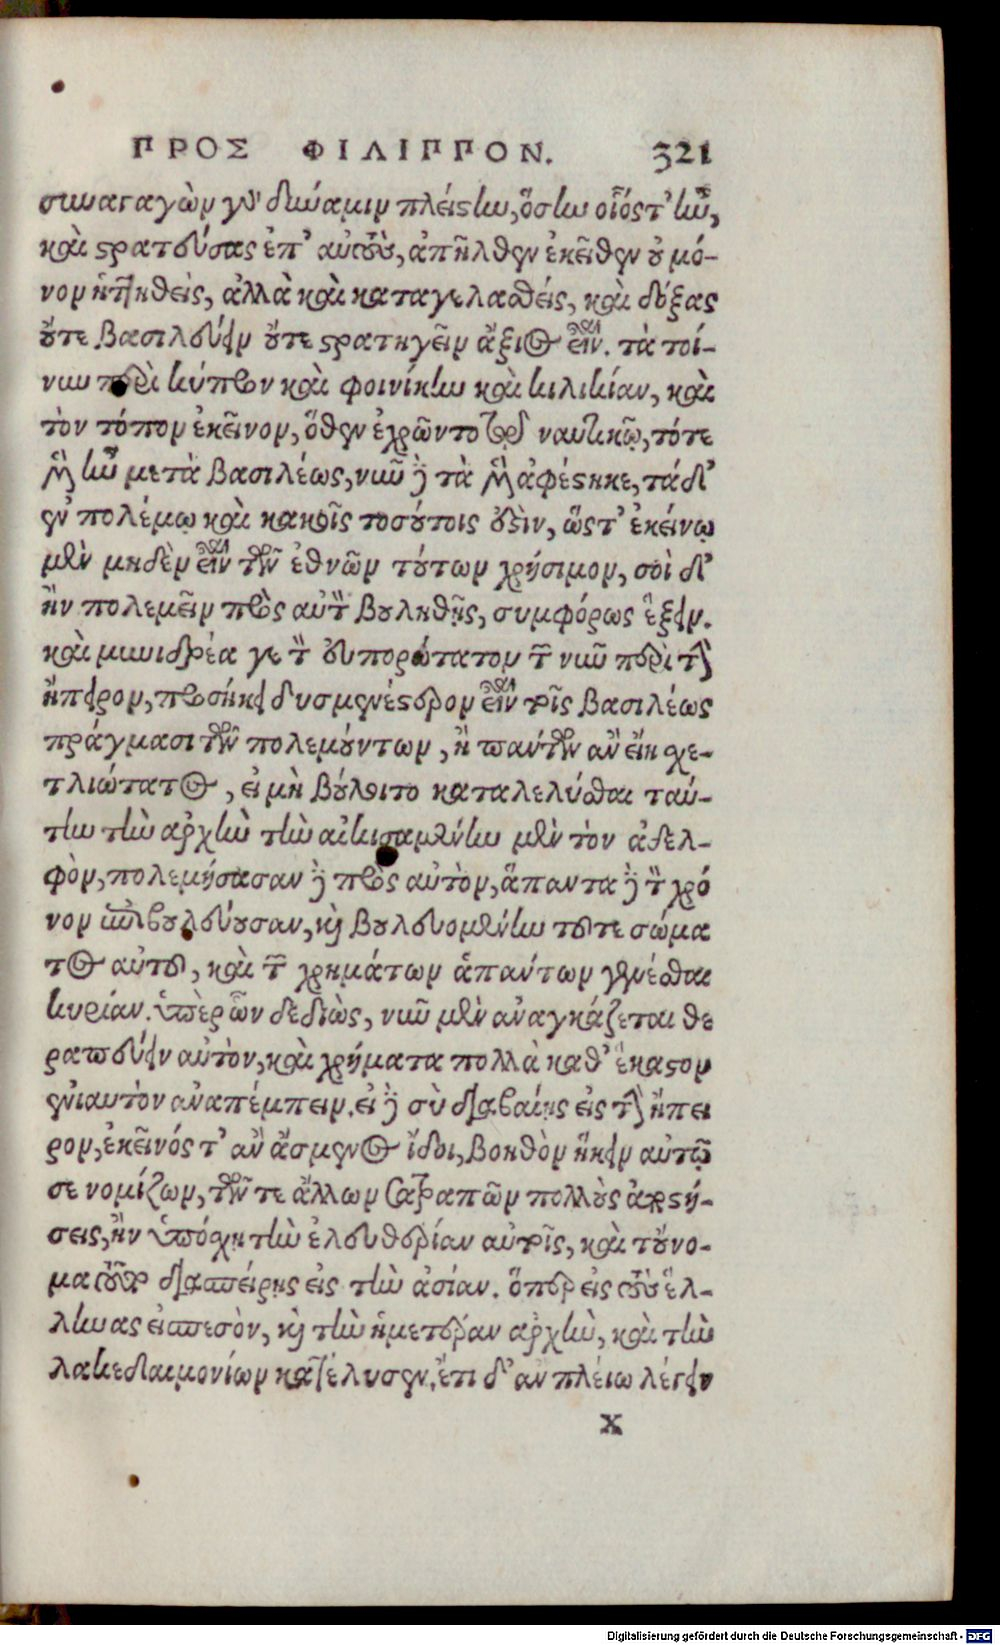 ΠΡΟΣ ΦΙΛΙΠΠΟΝ. 321
συναγαγὼν γὰρ δύναμιν πλείστην, ὅσην οἷός τ' ἦν,
καὶ στρατεύσας ἐπ' αὐτοὺς, ἀπῆλθεν ἐκεῖθεν οὐ μό-
νον ἡττηθεὶς, ἀλλὰ καὶ καταγελασθείς, καὶ δόξας
οὔτε βασιλεύειν οὔτε στρατηγεῖν ἄξιος εἶναι. τὰ τοί-
νυν περὶ κύπρον καὶ φοινίκην καὶ κιλικίαν, καὶ
τὸν τόπον ἐκεῖνον, ὅθεν ἐχρῶντο τῷ ναυτικῷ, τότε
μὲν ἦν μετὰ βασιλέως, νῦν δὲ τὰ μὲν ἀφέστηκε, τὰ δ'
ἐν πολέμῳ καὶ κακοῖς τοσούτοις ἐστὶν, ὥστ' ἐκείνῳ
μὲν μηδὲν εἶναι τῶν ἐθνῶν τούτων χρήσιμον, σοὶ δ'
ἢν πολεμεῖν πρὸς αὐτὸν βουληθῇς, συμφόρως ἕξειν.
καὶ μὴν ἰδριέα γε τὸν εὐπορώτατον τῶν νῦν περὶ τὴν
ἤπειρον, προσήκει δυσμενέστερον εἶναι τοῖς βασιλέως
πράγμασι τῶν πολεμούντων, ἢ πάντων ἂν εἴη σχε-
τλιώτατος, εἰ μὴ βούλοιτο καταλελύσθαι ταύ-
την τὴν ἀρχὴν τὴν αἰκισαμένην μὲν τὸν ἀδελ-
φὸν, πολεμήσασαν δὲ πρὸς αὐτὸν, ἅπαντα δὲ τὸν χρό
νον ἐπιβουλεύουσαν, καὶ βουλευομένην τοῦ τε σώμα
τος αὐτοῦ, καὶ τῶν χρημάτων ἁπάντων γενέσθαι
κυρίαν. ὑπὲρ ὧν δεδιὼς, νῦν μὲν ἀναγκάζεται θε
ραπεύειν αὐτὸν, καὶ χρήματα πολλὰ καθ' ἕκαστον
ἐνιαυτὸν ἀναπέμπειν. εἰ δὲ σὺ διαβαίης εἰς τὴν ἤπει
ρον, ἐκεῖνός τ' ἂν ἄσμενος ἴδοι, βοηθὸν ἥκειν αὐτῷ
σε νομίζων, τῶν τε ἄλλων σατραπῶν πολλοὺς ἀποστή-
σεις, ἢν ὑπόσχῃ τὴν ἐλευθερίαν αὐτοῖς, καὶ τοὔνο-
μα τοῦτο διασπείρῃς εἰς τὴν ἀσίαν. ὅπερ εἰς τοὺς ἕλ-
ληνας εἰσπεσὸν, καὶ τὴν ἡμετέραν ἀρχὴν, καὶ τὴν
λακεδαιμονίων κατέλυσεν. ἔτι δ' ἂν πλείω λέγειν
X
Digitalisierung gefördert durch die Deutsche Forschungsgemeinschaft - DFG